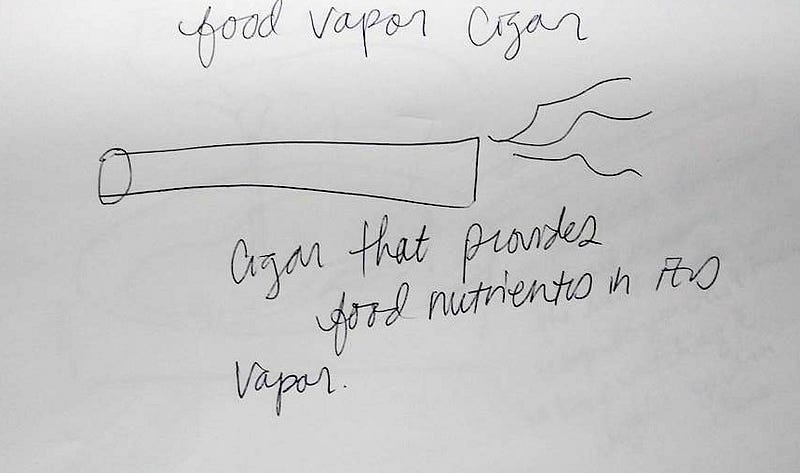 food vapor Cigar
Cigar that provides
food nutrients in its
Vapor.